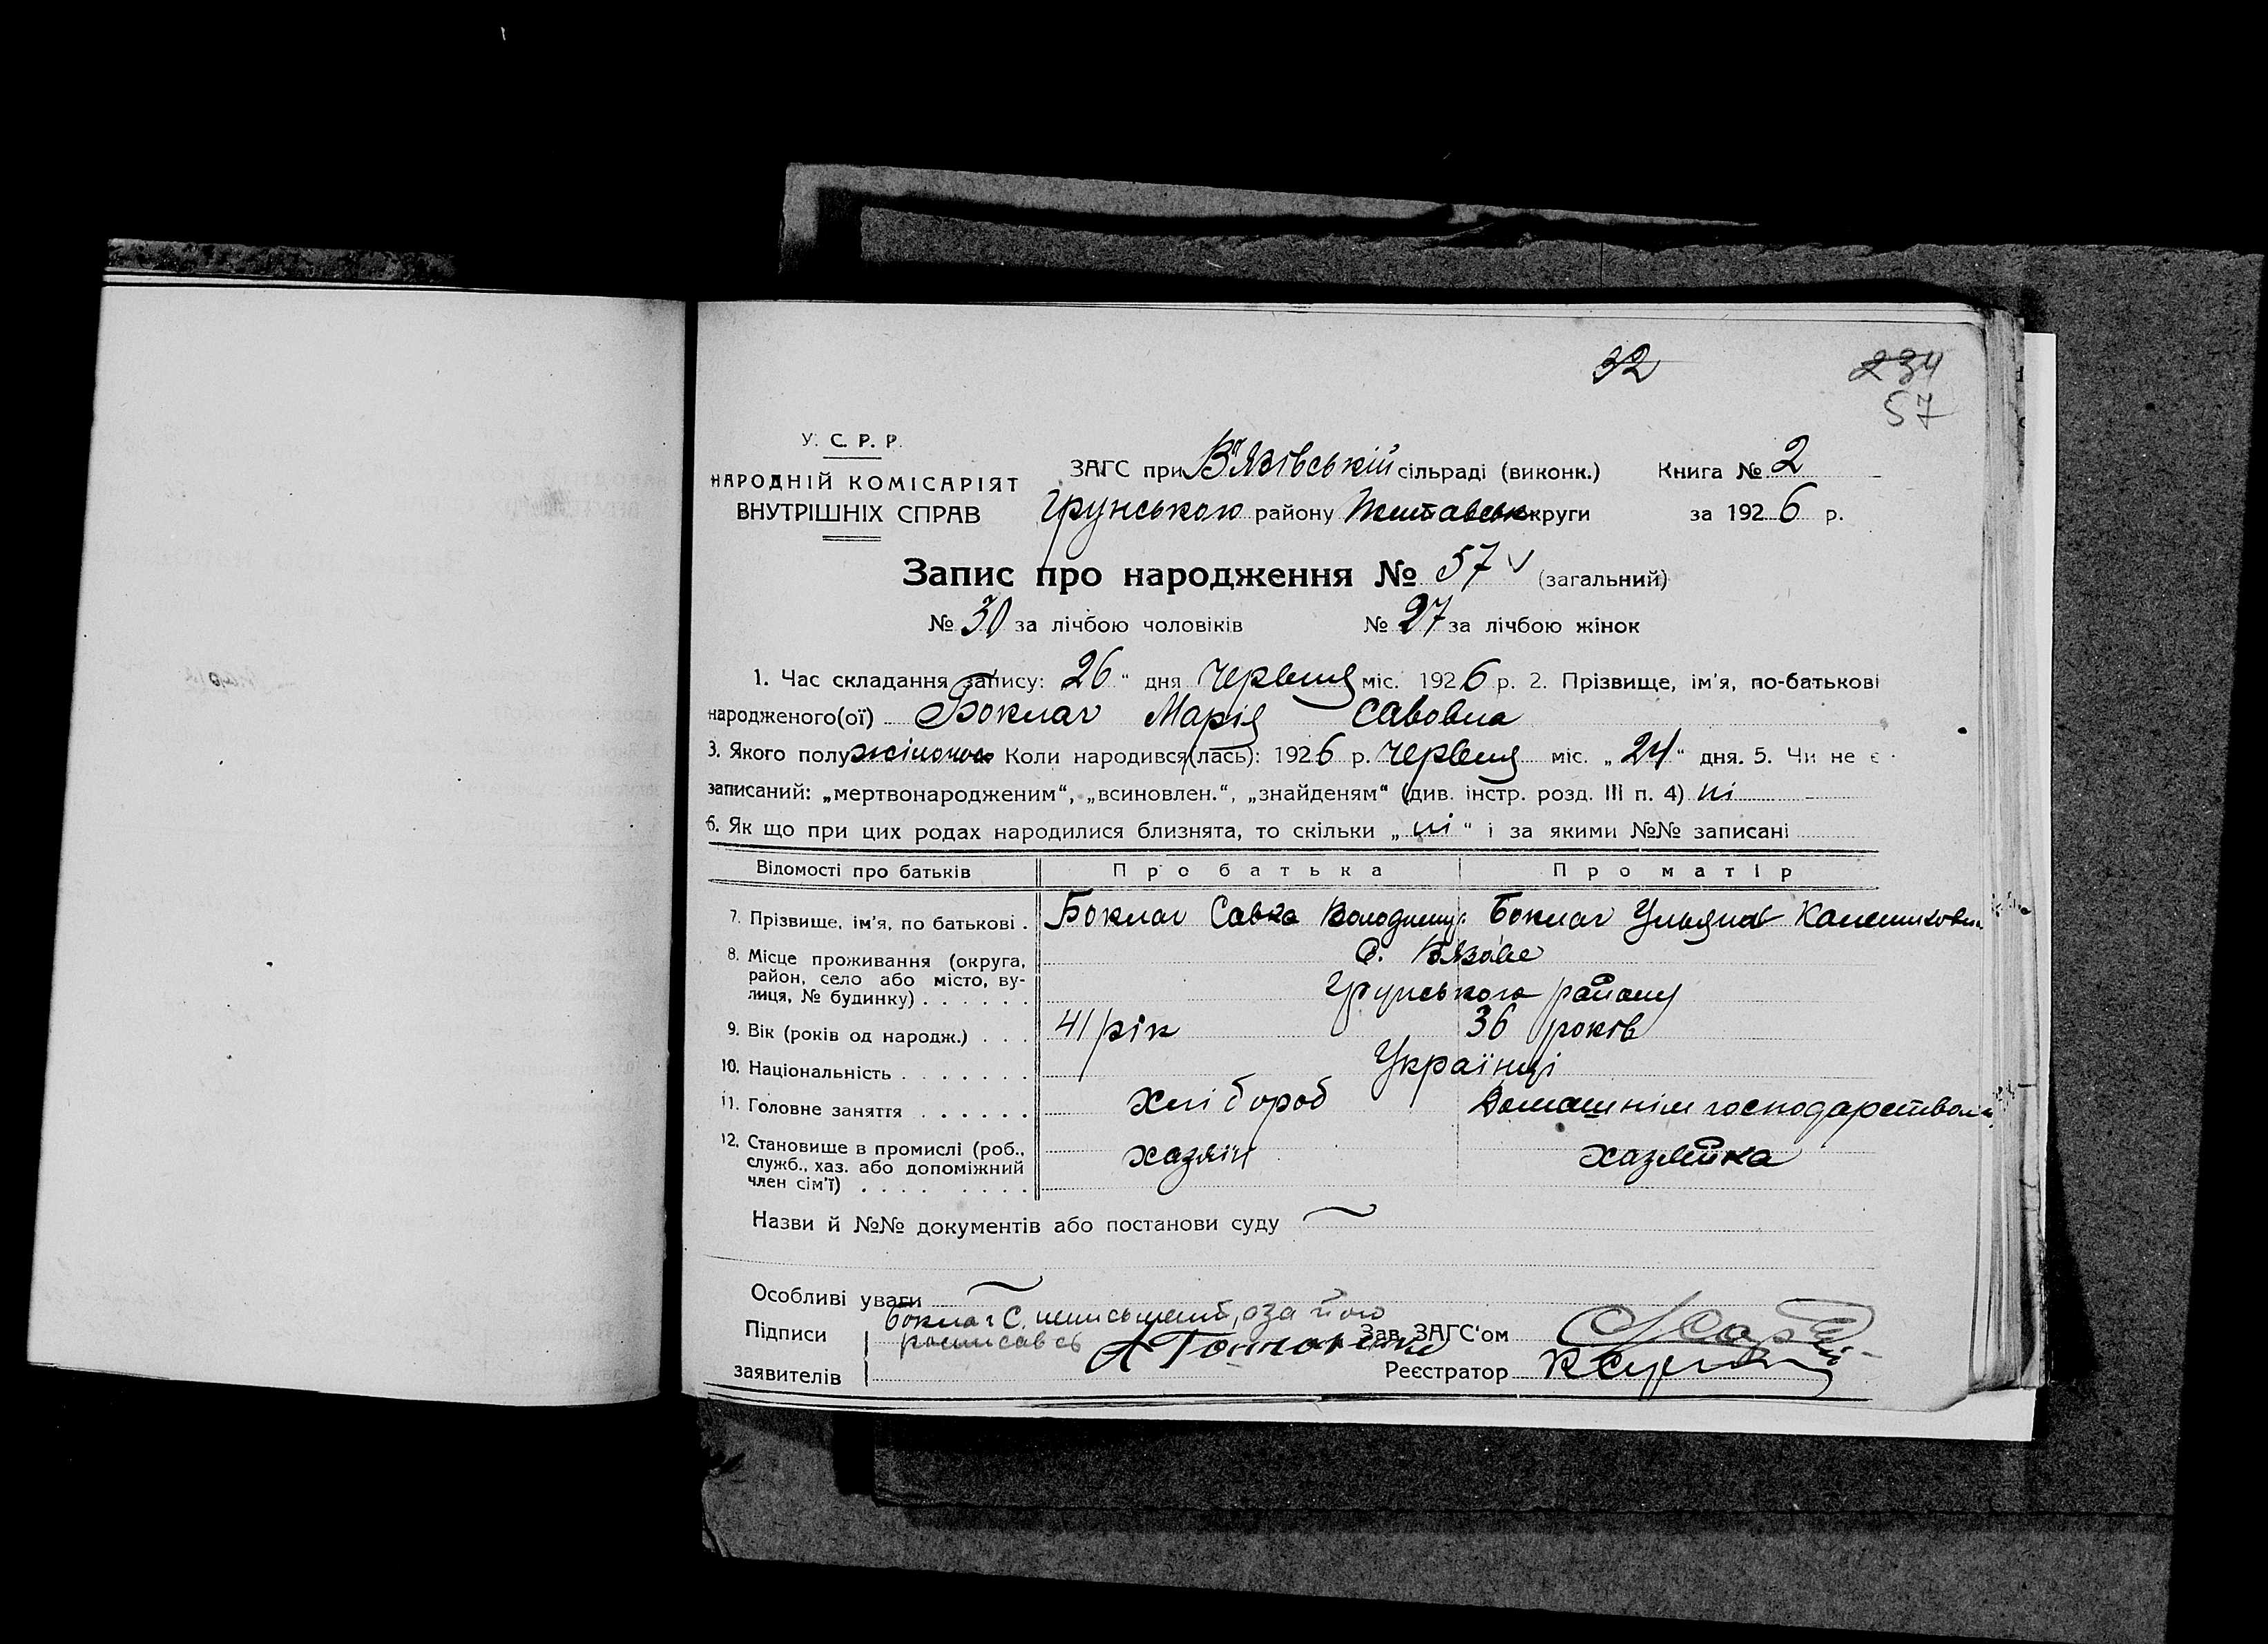 32
234
57
У. С. Р. Р.
НАРОДНІЙ КОМІСАРІЯТ
ВНУТРІШНІХ СПРАВ
ЗАГС при В'язівській сільраді (виконк.) Книга № 2
Грунського району округи за 1926 р.
Запис про народження № 57 (загальний)
№ 30 за лічбою чоловіків № 27 за лічбою жінок
1. Час складання запису: 26 " дня Червня міс. 1926 р. 2. Прізвище, ім'я, по-батькові
народженого(ої) Боклаг Марія Савовна
3. Якого полу жіночого Коли народився(лась): 1926 р. Червня міс. „ 24 " дня. 5. Чи не є
записаний: „мертвонародженим", „всиновлен.", „знайденям" (див. інстр. розд. III п. 4) ні
6. Як що при цих родах народилися близнята, то скільки „ ні " і за якими №№ записані
Відомості про батьків Про батька Про матір
7. Прізвище, ім'я, по батькові . Боклаг Савка Володимир. Боклаг Ульяна
8. Місце проживання (округа, район, село або місто, вулиця, № будинку) . . . . . . с. Вязове
Грунського району
9. Вік (років од народж.) . . . 41 рік 36 років
10. Національність . . . . . . . Українці
11. Головне заняття . . . . . . Хлібороб Домашнім господарством
12. Становище в промислі (роб., служб., хаз. або допоміжний член сім'ї) . . . . . . . . хазяїн хазяйка
Назви й №№ документів або постанови суду
Особливі уваги
Підписи Боклаг С. неписьмений, а за його
росписавсь А Гончаренко Зав. ЗАГС'ом
заявителів Реєстратор